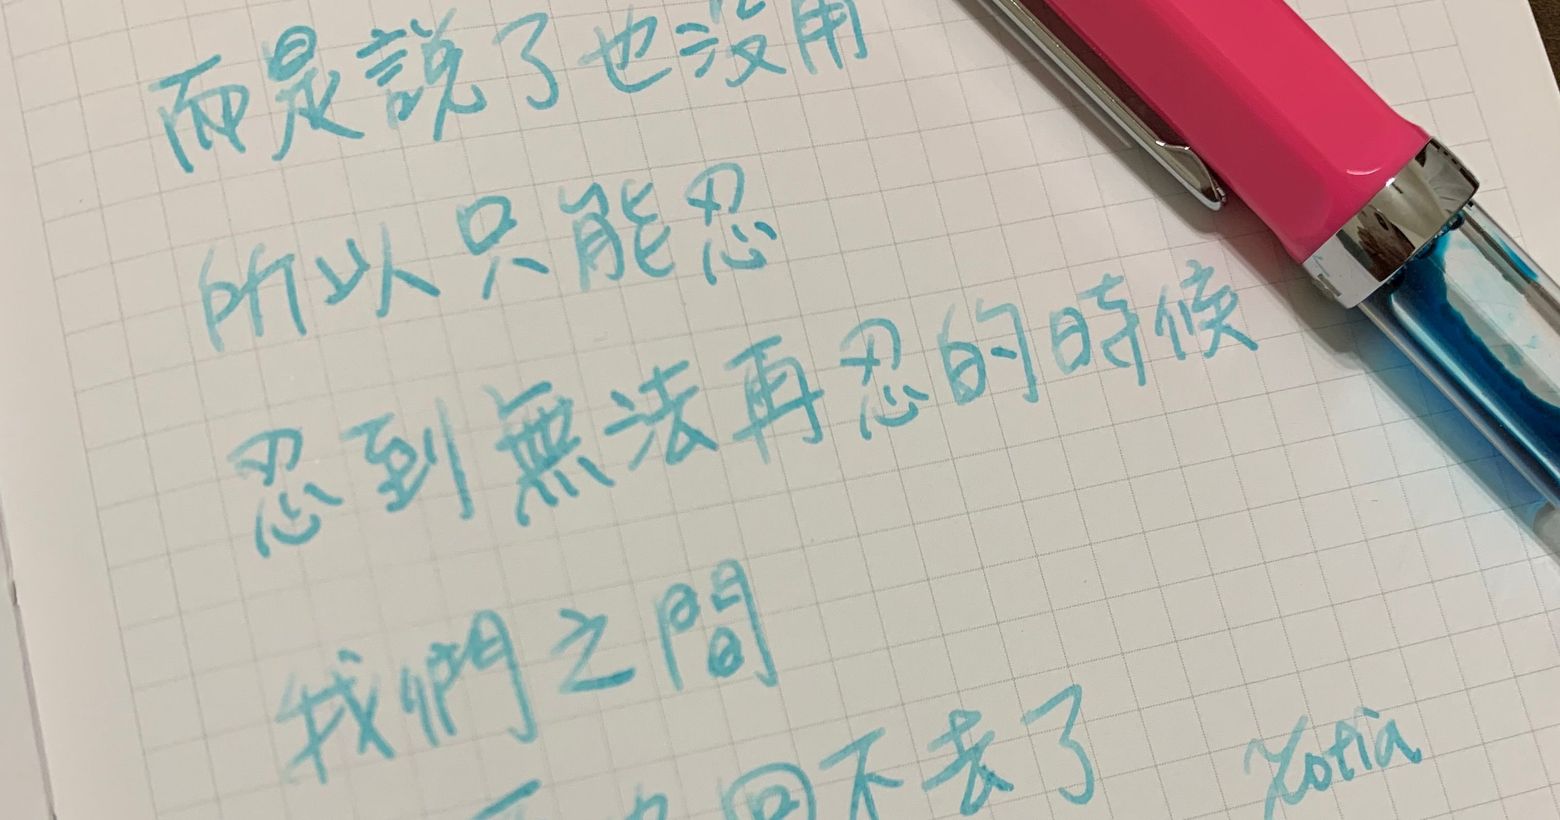 而是說了也沒用
所以只能忍
忍到無法再忍的時候
我們之間
再也回不去了
Zofia